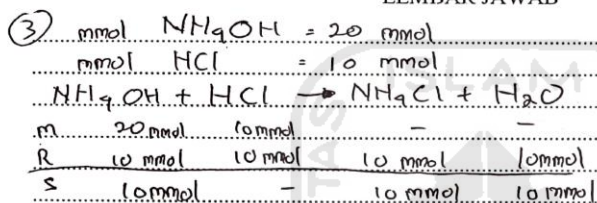 LEMBAR JAWAB
③ mmol NH4OH = 20 mmol
mmol HCl = 10 mmol
NH4OH + HCl → NH4Cl + H2O
m 20 mmol 10 mmol - -
R 10 mmol 10 mmol 10 mmol 10 mmol
S 10 mmol - 10 mmol 10 mmol
TAS ISLAM